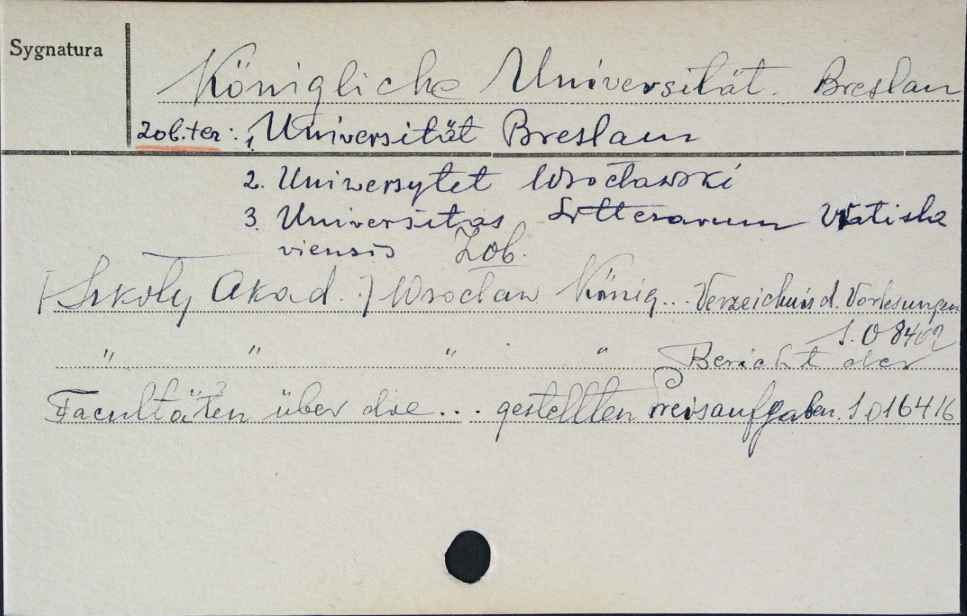 Sygnatura
Königliche Universität. Breslau
Zob.też: 1. Universität Breslau
2. Uniwersytet Wrocławski
3. Universitas Litterarum Vratisla
viensis Zob.
[Szkoły Akad.] Wrocław König... Verzeichnis d. Vorlesungen
" " " " Bericht der
Facultäten über die ... gestellten Preisaufgaben. S.016416